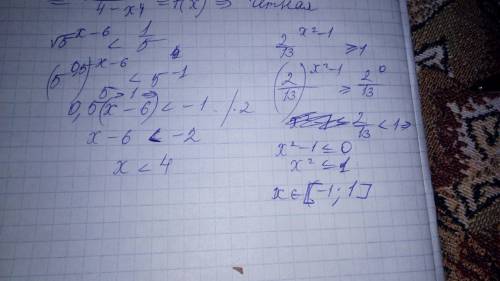 = 4-x4 = f(x) ⇒ четная
√5^x-6 < 1/5
(5^0,5)^x-6 < 5^-1
5>1 ⇒
0,5(x-6) < -1 /·2
x-6 < -2
x < 4
2/13^x²-1 ≥ 1
(2/13)^x²-1 ≥ 2/13^0
2/13 < 1 ⇒
x²-1 ≤ 0
x² ≤ 1
x ∈ [-1; 1]